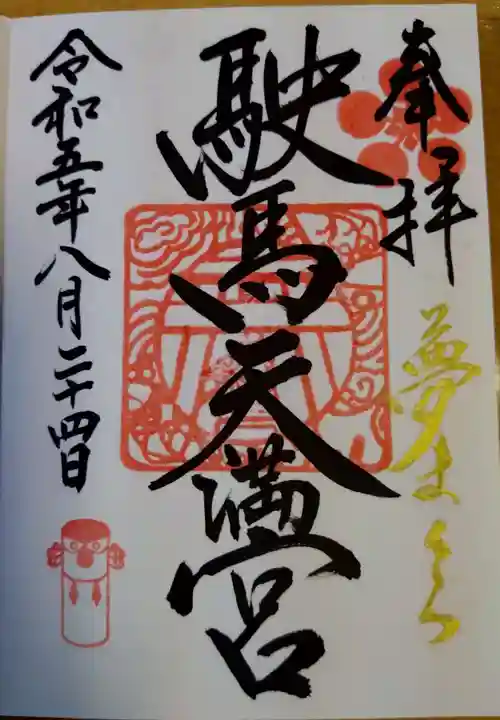 奉拝
夢まくら
駛馬天満宮
令和五年八月二十四日